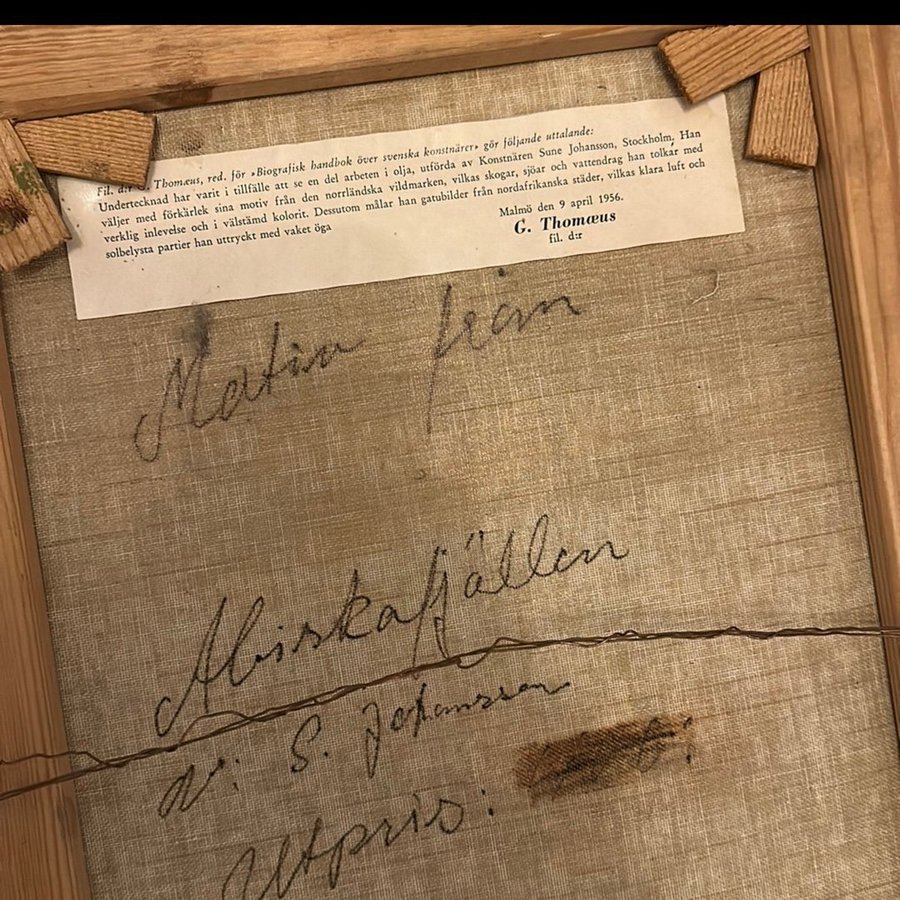 Fil. d:r G. Thomæus, red. för »Biografisk handbok över svenska konstnärer» gör följande uttalande:
Undertecknad har varit i tillfälle att se en del arbeten i olja, utförda av Konstnären Sune Johansson, Stockholm, Han
väljer med förkärlek sina motiv från den norrländska vildmarken, vilkas skogar, sjöar och vattendrag han tolkar med
verklig inlevelse och i välstämd kolorit. Dessutom målar han gatubilder från nordafrikanska städer, vilkas klara luft och
solbelysta partier han uttryckt med vaket öga
Malmö den 9 april 1956.
G. Thomæus
fil. d:r
Motiv från
Abiskofjällen
av: S. Johansson
Utpris: